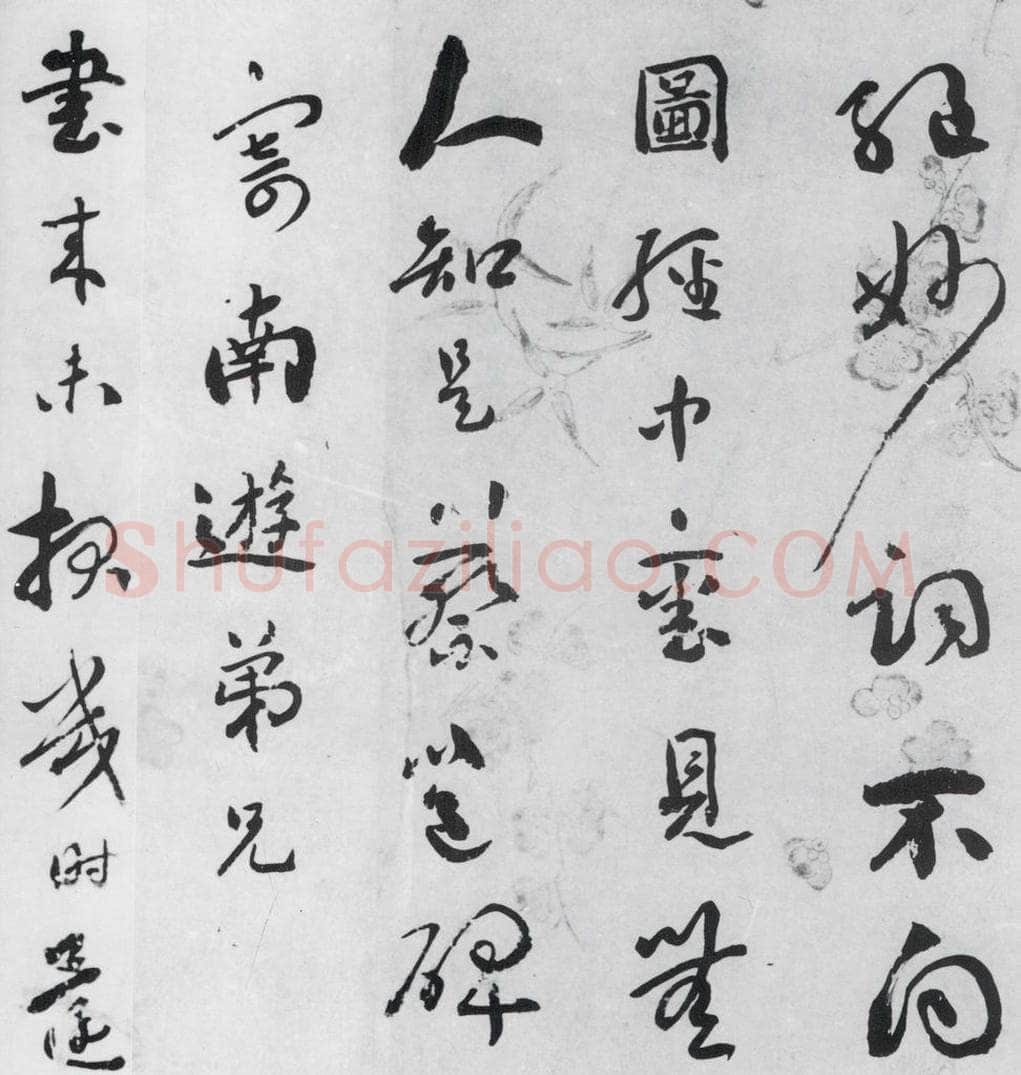 絕妙詞不向
圖經中裏見無
人知是蔡邕碑
寄南遊弟兄
書來未報幾時還
Shufaziliao.COM